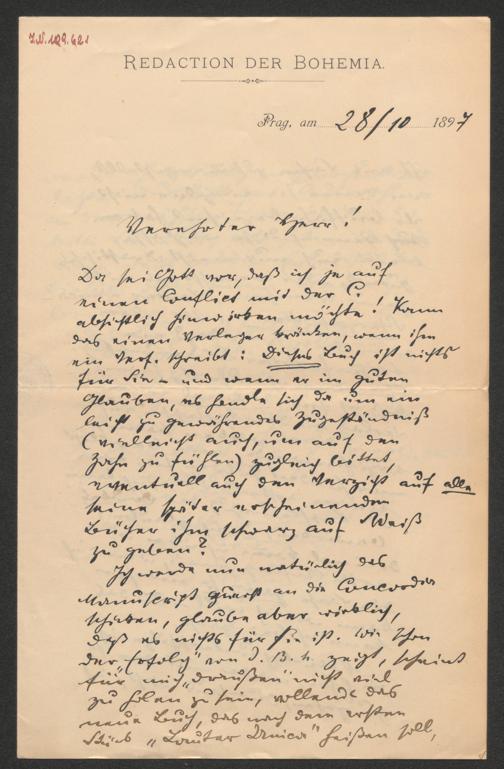 I.N. 129.621
REDACTION DER BOHEMIA.
Prag, am 28/10 1897
Verehrter Herr!
Da sei Gott vor, daß ich je auf
einen Conflict mit der C.
absichtlich hinwirken möchte! Kann
das einen Verleger kränken, wenn ihm
ein Verf. schreibt: Dieses Buch ist nichts
für Sie – und wenn er im guten
Glauben, es handle sich da um ein
leicht zu gewährendes Zugeständniß
(vielleicht auch, um auf den
Zahn zu fühlen) zugleich bittet,
eventuell auch den Verzicht auf alle
seine später erscheinenden
Bücher ihm schwarz auf Weiß
zu geben?
Ich werde nun natürlich das
Manuscript zuerst an die Concordia
schicken, glaube aber wirklich,
daß es nichts für sie ist. Wie schon
der „Erfolg" von J. B. h. zeigt, scheint
für mich „draußen" nicht viel
zu holen zu sein, vollends das
neue Buch, das nach dem ersten
Stück „Lauter Unica" heißen soll,